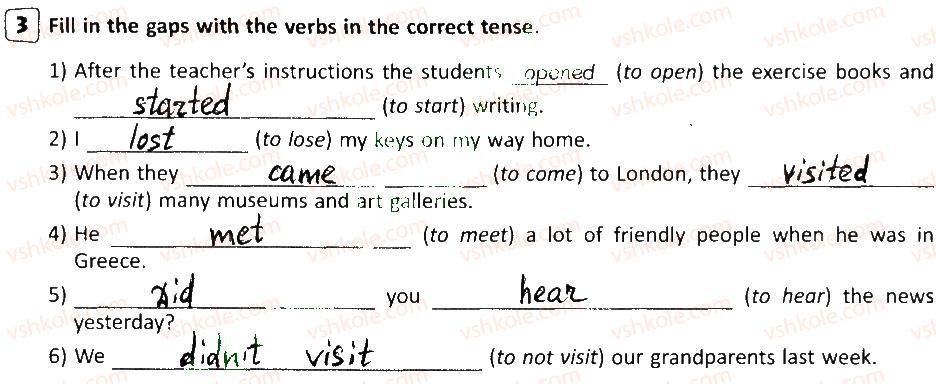 3 Fill in the gaps with the verbs in the correct tense.
1) After the teacher's instructions the students opened (to open) the exercise books and
started (to start) writing.
2) I lost (to lose) my keys on my way home.
3) When they came (to come) to London, they visited
(to visit) many museums and art galleries.
4) He met (to meet) a lot of friendly people when he was in
Greece.
5) Did you hear (to hear) the news
yesterday?
6) We didn't visit (to not visit) our grandparents last week.